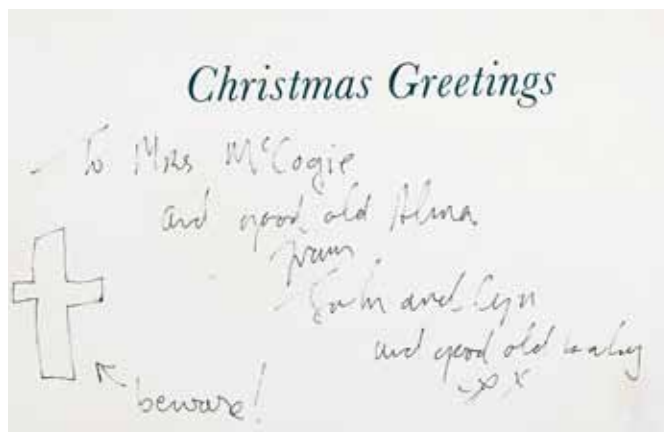 Christmas Greetings
To Mrs McCogie
and good old Alma.
from
and Cyn
and good old baby
x x
beware!